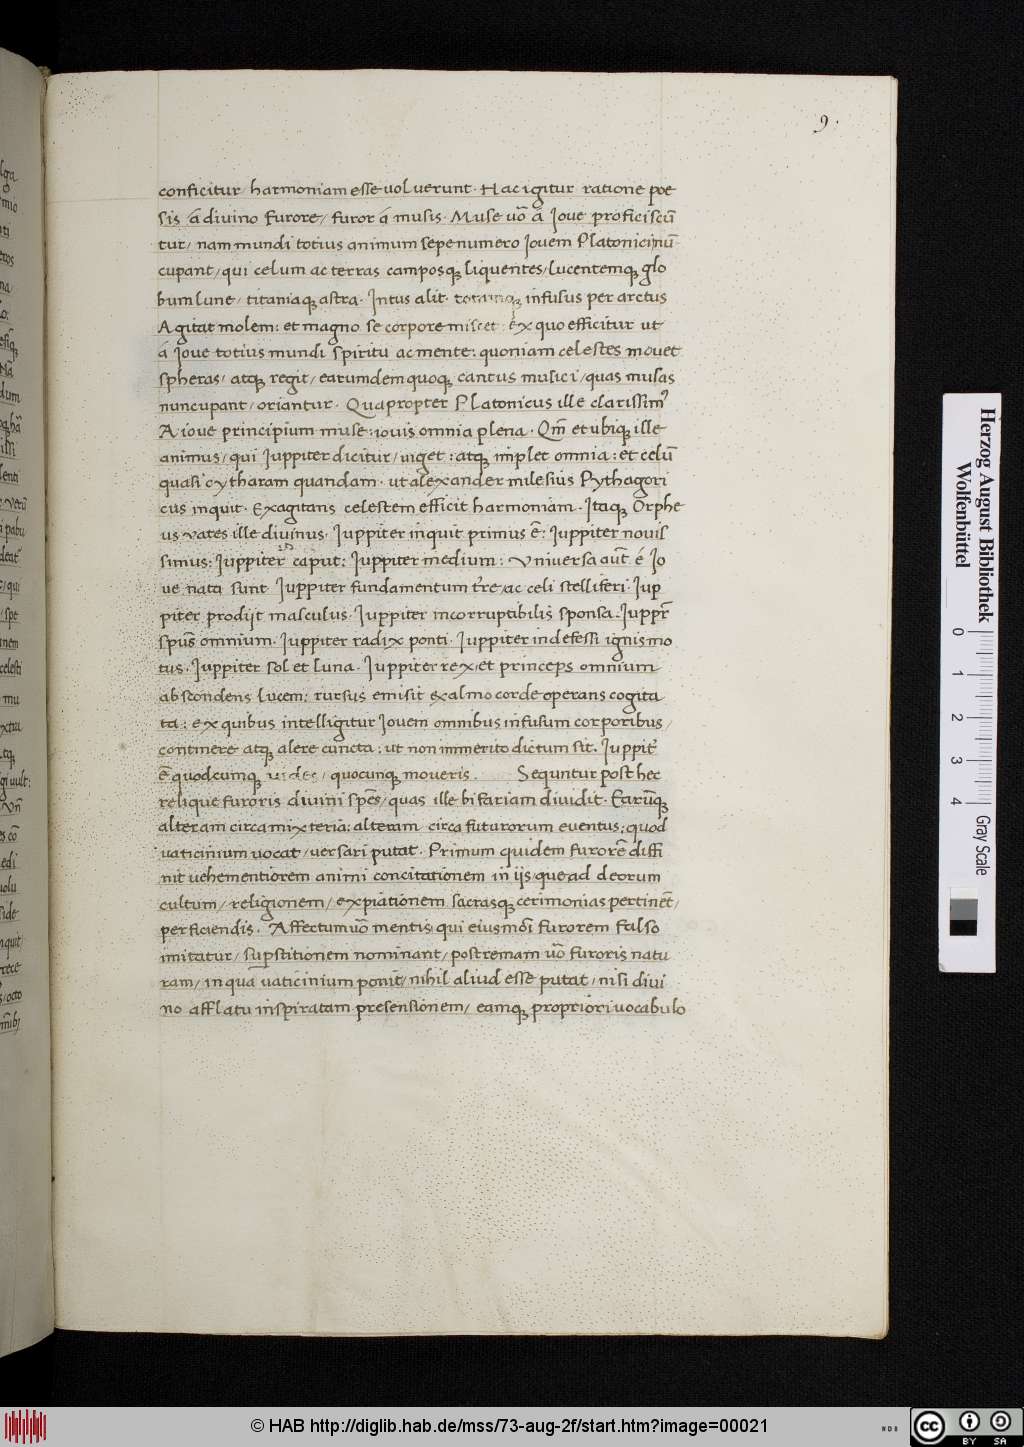 9.
conficitur harmoniam esse voluerunt. Hac igitur ratione poe
sis á divino furore/ furor á musis. Muse uo᷉ á Ioue proficiscu᷉
tur/ nam mundi totius animum sepenumero Iovem Platonici nu᷉
cupant/ qui celum ac terras camposqꝫ liquentes/ lucentemqꝫ glo
bum lune/ titaniaqꝫ astra. Intus alit. totamqꝫ infusus per arctus
Agitat molem: et magno se corpore miscet: ex quo efficitur ut
á Ioue totius mundi spiritu ac mente: quoniam celestes mouet
spheras/ atqꝫ regit/ earumdem quoqꝫ cantus musici/ quas musas
nuncupant/ oriantur. Quapropter Platonicus ille clarissimꝰ
A ioue principium muse: iovis omnia plena. Qm̄ et ubiqꝫ ille
animus/ qui Iuppiter dicitur/ uiget: atqꝫ implet omnia: et celu᷉
quasi cytharam quandam. ut alexander milesius Pythagori
cus inquit. Exagitans celestem efficit harmoniam. Itaqꝫ Orphe
us vates ille divinus. Iuppiter inquit primus ē: Iuppiter nouis
simus: Iuppiter caput: Iuppiter medium: Universa aut̄ é Io
ue nata sunt. Iuppiter fundamentum tr̄re/ ac celi stelliferi. Iup
piter prodijt masculus. Iuppiter incorruptibilis sponsa. Iuppr̄
spūs omnium. Iuppiter radix ponti. Iuppiter indefessi ignis mo
tus. Iuppiter sol et luna. Iuppiter rex/ et princeps omnium
abscondens lucem: rursus emisit ex almo corde operans cogita
ta: ex quibus intelligitur Iouem omnibus infusum corporibus/
continere atqꝫ alere cuncta: ut non immerito dictum sit. Iuppit᷑
ē quodcumqꝫ uides/ quocunqꝫ moueris. Sequntur post hec
relique furoris divini spēs/ quas ille bifariam dividit. Earu᷉qꝫ
alteram circa mixteria: alteram circa futurorum eventus: quod
vaticinium vocat/ versari putat. Primum quidem furorē diffi
nit vehementiorem animi concitationem in iis/ que ad deorum
cultum/ religionem/ expiationem sacrasqꝫ cerimonias pertinēt/
perficiendis. Affectum uo᷉ mentis/ qui eiusmo᷉i furorem falso
imitatur/ sup̄stitionem nominant/ postremam uo᷉ furoris natu
ram/ in qua vaticinium ponit/ nihil aliud esse putat/ nisi divi
no afflatu inspiratam presensionem/ eamqꝫ propriori vocabulo
Herzog August Bibliothek
Wolfenbüttel
0 1 2 3 4
Gray Scale
© HAB http://diglib.hab.de/mss/73-aug-2f/start.htm?image=00021
WDB
cc BY SA